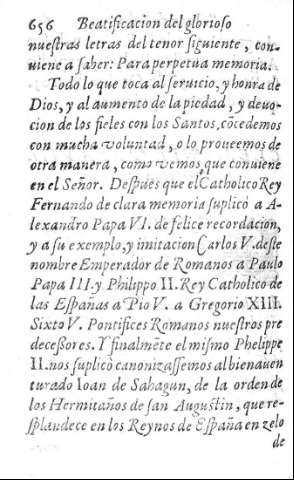 656 Beatificacion del glorioso
nuestras letras del tenor siguiente, con-
uiene a saber: Para perpetua memoria.
Todo lo que toca al seruicio, y honra de
Dios, y al aumento de la piedad, y deuo-
cion de los fieles con los Santos, cōcedemos
con mucha voluntad, o lo proueemos de
otra manera, como vemos que conuiene
en el Señor. Despues que el Catholico Rey
Fernando de clara memoria suplicò a A-
lexandro Papa VI. de felice recordacion,
y a su exemplo, y imitacion Carlos V. deste
nombre Emperador de Romanos a Paulo
Papa III. y Philippo II. Rey Catholico de
las Españas a Pio V. a Gregorio XIII.
Sixto V. Pontifices Romanos nuestros pre
decessores. Y finalmēte el mismo Phelippe
II. nos suplicò canonizassemos al bienauen
turado Ioan de Sahagun, de la orden de
los Hermitaños de san Augustin, que re-
splandece en los Reynos de España en zelo
de